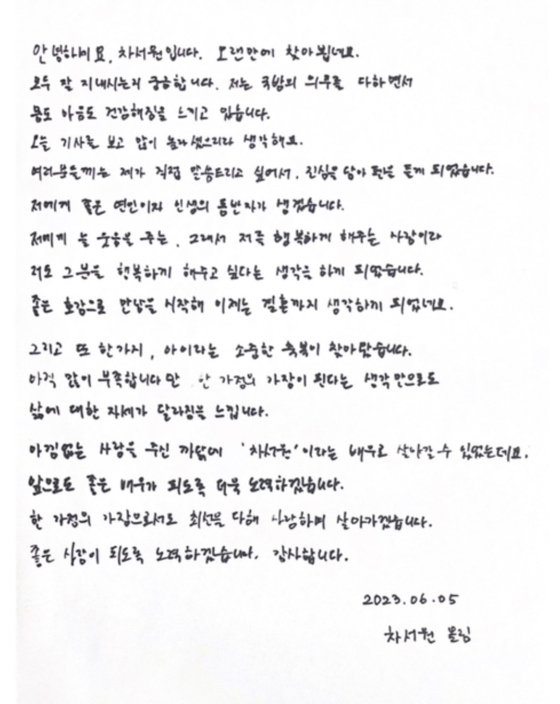 안녕하세요, 차서원입니다. 오랜만에 찾아뵙네요.
모두 잘 지내시는지 궁금합니다. 저는 국방의 의무를 다하면서
몸도 마음도 건강해짐을 느끼고 있습니다.
오늘 기사를 보고 많이 놀라셨으리라 생각해요.
여러분들께는 제가 직접 말씀드리고 싶어서, 진심을 담아 펜을 들게 되었습니다.
저에게 좋은 연인이자 인생의 동반자가 생겼습니다.
저에게 늘 웃음을 주는, 그래서 저를 행복하게 해주는 사람이라
저도 그분을 행복하게 해주고 싶다는 생각을 하게 되었습니다.
좋은 호감으로 만남을 시작해 이제는 결혼까지 생각하게 되었네요.
그리고 또 한가지, 아이라는 소중한 축복이 찾아왔습니다.
아직 많이 부족합니다만 한 가정의 가장이 된다는 생각만으로도
삶에 대한 자세가 달라짐을 느낍니다.
아낌없는 사랑을 주신 까닭에 '차서원'이라는 배우로 살아갈 수 있었는데요.
앞으로도 좋은 배우가 되도록 더욱 노력하겠습니다.
한 가정의 가장으로서도 최선을 다해 사랑하며 살아가겠습니다.
좋은 사람이 되도록 노력하겠습니다. 감사합니다.
2023.06.05
차서원 올림